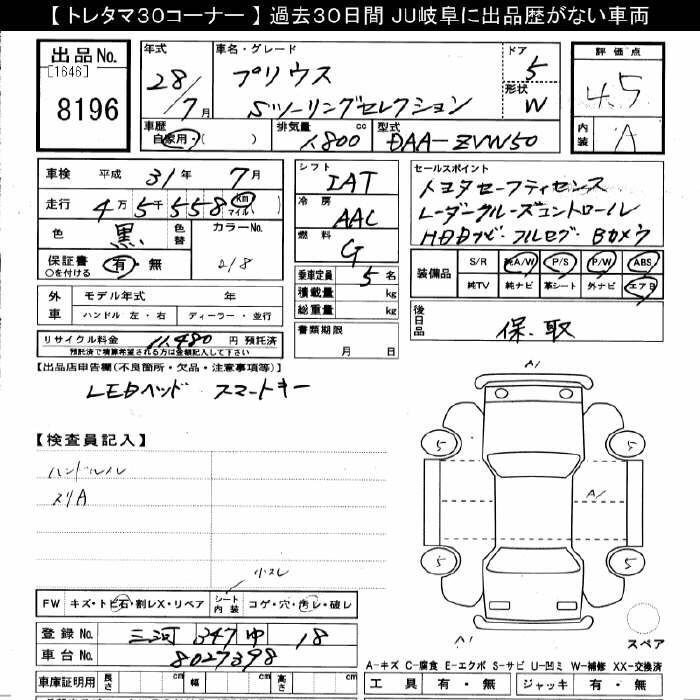 【 トレタマ30コーナー 】 過去30日間 JU岐阜に出品歴がない車両
出品No.
[1646]
8196
年式
28/7月
車名・グレード
プリウス
Sツーリングセレクション
ドア
5
形状
W
評価点
4.5
内装
A
車歴
自家用・( )
排気量
1800cc
型式
DAA-ZVW50
車検 平成 31年 7月
走行 4万5千558 Km マイル( )
色
黒
色替
カラーNo.
218
保証書
○を付ける
有・無
シフト
IAT
冷房
AAC
燃料
G
乗車定員 5名
積載量 kg
総重量 kg
書類期限
月 日
セールスポイント
トヨタセーフティセンス
レーダークルーズコントロール
HDDナビ・フルセグ・Bカメラ
装備品
S/R 純A/W P/S P/W ABS
純TV 純ナビ 革シート 外ナビ エアB
外車
モデル年式 年
ハンドル 左・右 ディーラー・並行
後日品
保.取
リサイクル料金 11,480 円 預託済
預託済で精算希望される方は金額記入して下さい
【出品店申告欄(不良箇所・欠品・注意事項等)】
LEDヘッド スマートキー
【検査員記入】
ハンドル
スリA
小スレ
A1
5
5
A1
5
5
A1
スペア
FW キズ・トビ石・割レX・リペア
シート内装 コゲ・穴・汚レ・破レ
登録No. 三河 347 ゆ 18
車台No. 8027398
車庫証明用 長さ 幅 高さ
A-キズ C-腐食 E-エクボ S-サビ U-凹ミ W-補修 XX-交換済
工具 有・無 ジャッキ 有・無